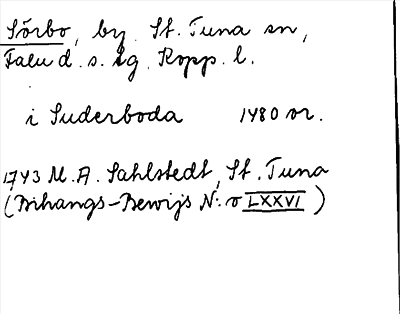 Sörbo, by. St. Tuna sn,
Falu d. s. lg. Kopp. l.
i Suderboda 1480 or.
1743 M. A. Sahlstedt, St. Tuna
(Bihangs-Bewijs N:o LXXVI)